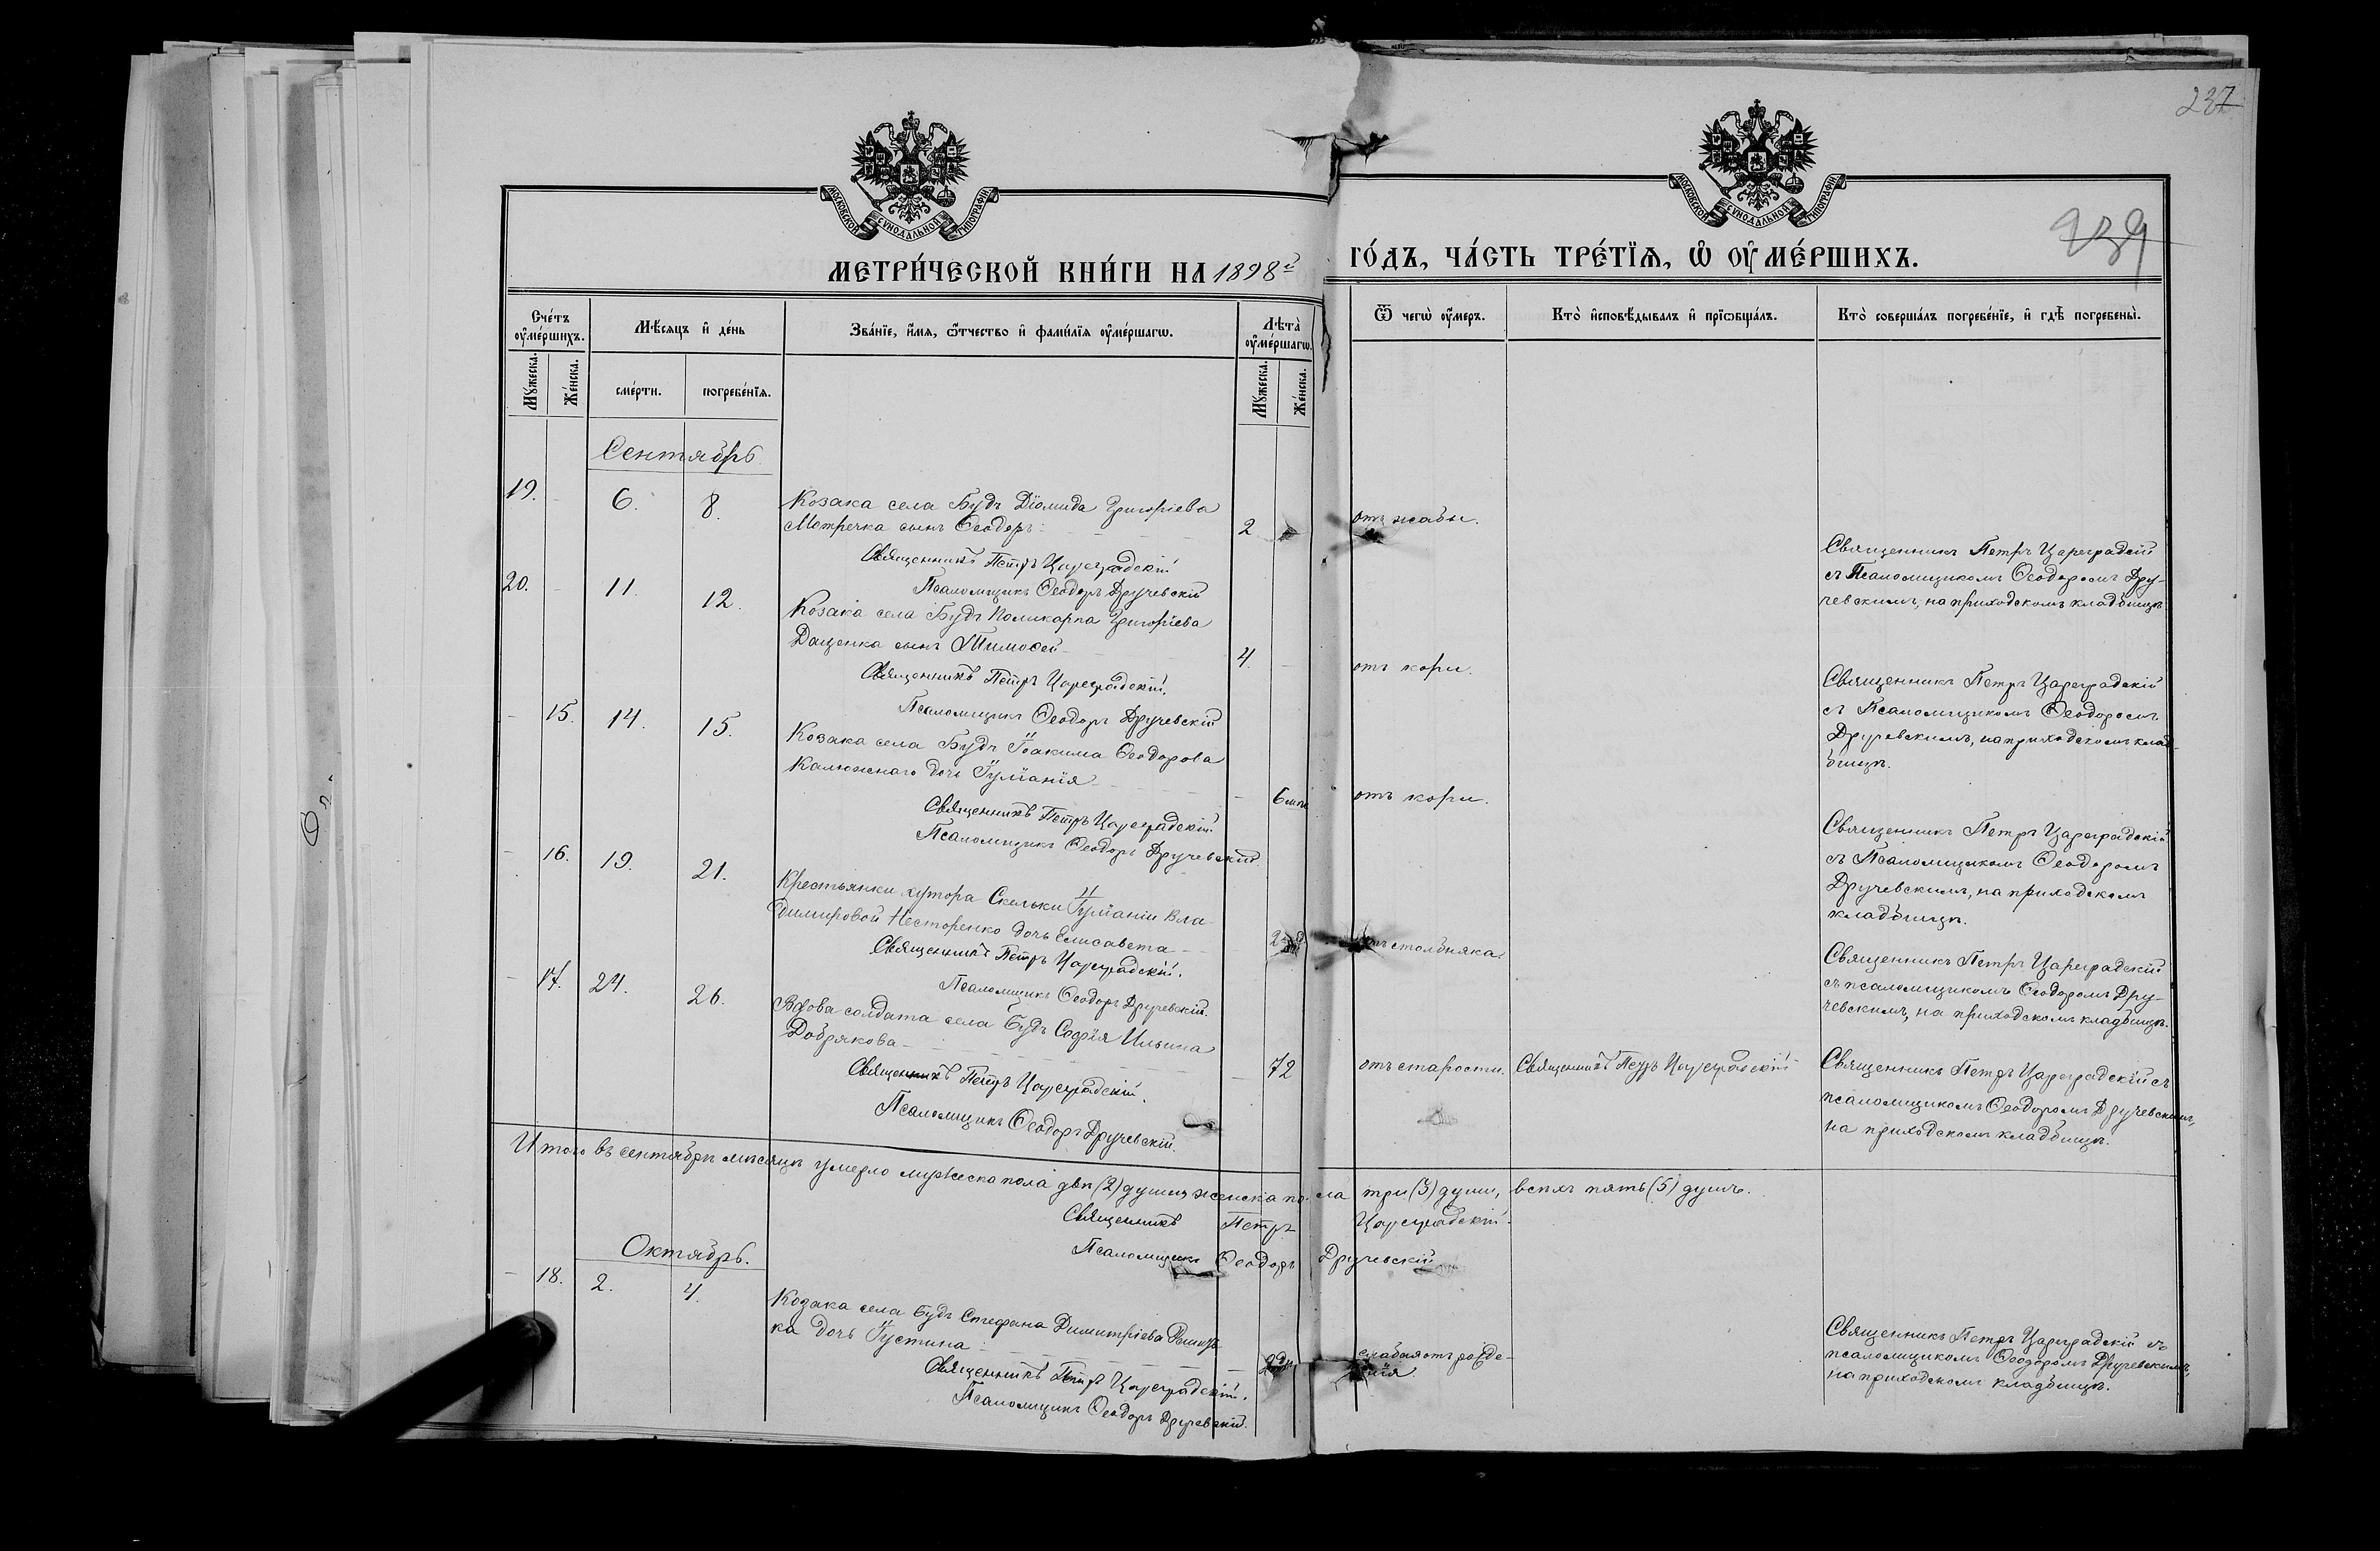 237
239
МОСКОВСКОЙ СѴНОДАЛЬНОЙ ТИПОГРАФІИ
МОСКОВСКОЙ СѴНОДАЛЬНОЙ ТИПОГРАФІИ
МЕТРИ́ЧЕСКОЙ КНИ́ГИ НА 1898й ГО́ДЪ, ЧА́СТЬ ТРЕ́ТЇѦ, Ѡ҆ ОУ҆МЕ́РШИХЪ.
Сче́тъ оу҆ме́ршихъ.
Мꙋ́жеска.
Же́нска.
Мѣ́сѧцъ и҆ де́нь
сме́рти.
погребе́нїѧ.
Зва́нїе, и҆́мѧ, ѻ҆́тчество и҆ фами́лїѧ оу҆ме́ршагѡ.
Лѣ̀та оу҆ме́ршагѡ.
Мꙋ́жеска.
Же́нска.
Ѿ чегѡ̀ оу҆́меръ.
Кто̀ и҆сповѣ́дывалъ и҆ прїѡбща́лъ.
Кто̀ соверша́лъ погребе́нїе, и҆ гдѣ̀ погребены̀.
Сентябрь
19. - 6. 8. Козака села Будъ Діомида Григоріева
Мотречка сынъ Ѳеодоръ 2 отъ жабы.
Священникъ Петръ Цареградскій
Псаломщикъ Ѳеодоръ Дручевскій
Священникъ Петръ Цареградскій
съ Псаломщикомъ Ѳеодоромъ Дру-
чевскимъ, на приходскомъ кладбищѣ
20. - 11. 12. Козака села Будъ Поликарпа Григоріева
Даценка сынъ Тимоѳей 4. - отъ кори.
Священникъ Петръ Цареградскій.
Псаломщикъ Ѳеодоръ Дручевскій
Священникъ Петръ Цареградскій
съ Псаломщикомъ Ѳеодоромъ
Дручевскимъ, на приходскомъ клад-
бищѣ.
- 15. 14. 15. Козака села Будъ Іоакима Ѳеодорова
Калюжнаго дочь Іуліанія - 6 отъ кори.
Священникъ Петръ Цареградскій
Псаломщикъ Ѳеодоръ Дручевскій.
Священникъ Петръ Цареградскій
съ Псаломщикомъ Ѳеодоромъ
Дручевскимъ, на приходскомъ
кладбищѣ.
- 16. 19. 21. Крестьянки хутора Скельки Іуліаніи Вла-
димировой Несторенко дочь Елисавета отъ столбняка
Священникъ Петръ Цареградскій.
Псаломщикъ Ѳеодоръ Дручевскій.
Священникъ Петръ Цареградскій
съ псаломщикомъ Ѳеодоромъ Дру-
чевскимъ, на приходскомъ кладбищѣ.
- 17. 24. 26. Вдова солдата села Будъ Софія Ильина
Добрякова - 72 отъ старости. Священникъ Петръ Цареградскій
Священникъ Петръ Цареградскій.
Псаломщикъ Ѳеодоръ Дручевскій.
Священникъ Петръ Цареградскій съ
псаломщикомъ Ѳеодоромъ Дручевскимъ,
на приходскомъ кладбищѣ.
Итого въ сентябрѣ мѣсяцѣ умерло мужеска пола двѣ (2) души женска пола три (3) души, всѣхъ пять (5) душъ.
Священникъ Петръ Цареградскій.
Псаломщикъ Ѳеодоръ Дручевскій
Октябрь.
- 18. 2. 4. Козака села Будъ Стефана Димитріева
ка дочь Іустина - слабая отъ рожде-
нія.
Священникъ Петръ Цареградскій.
Псаломщикъ Ѳеодоръ Дручевскій.
Священникъ Петръ Цареградскій съ
псаломщикомъ Ѳеодоромъ Дручевскимъ,
на приходскомъ кладбищѣ.